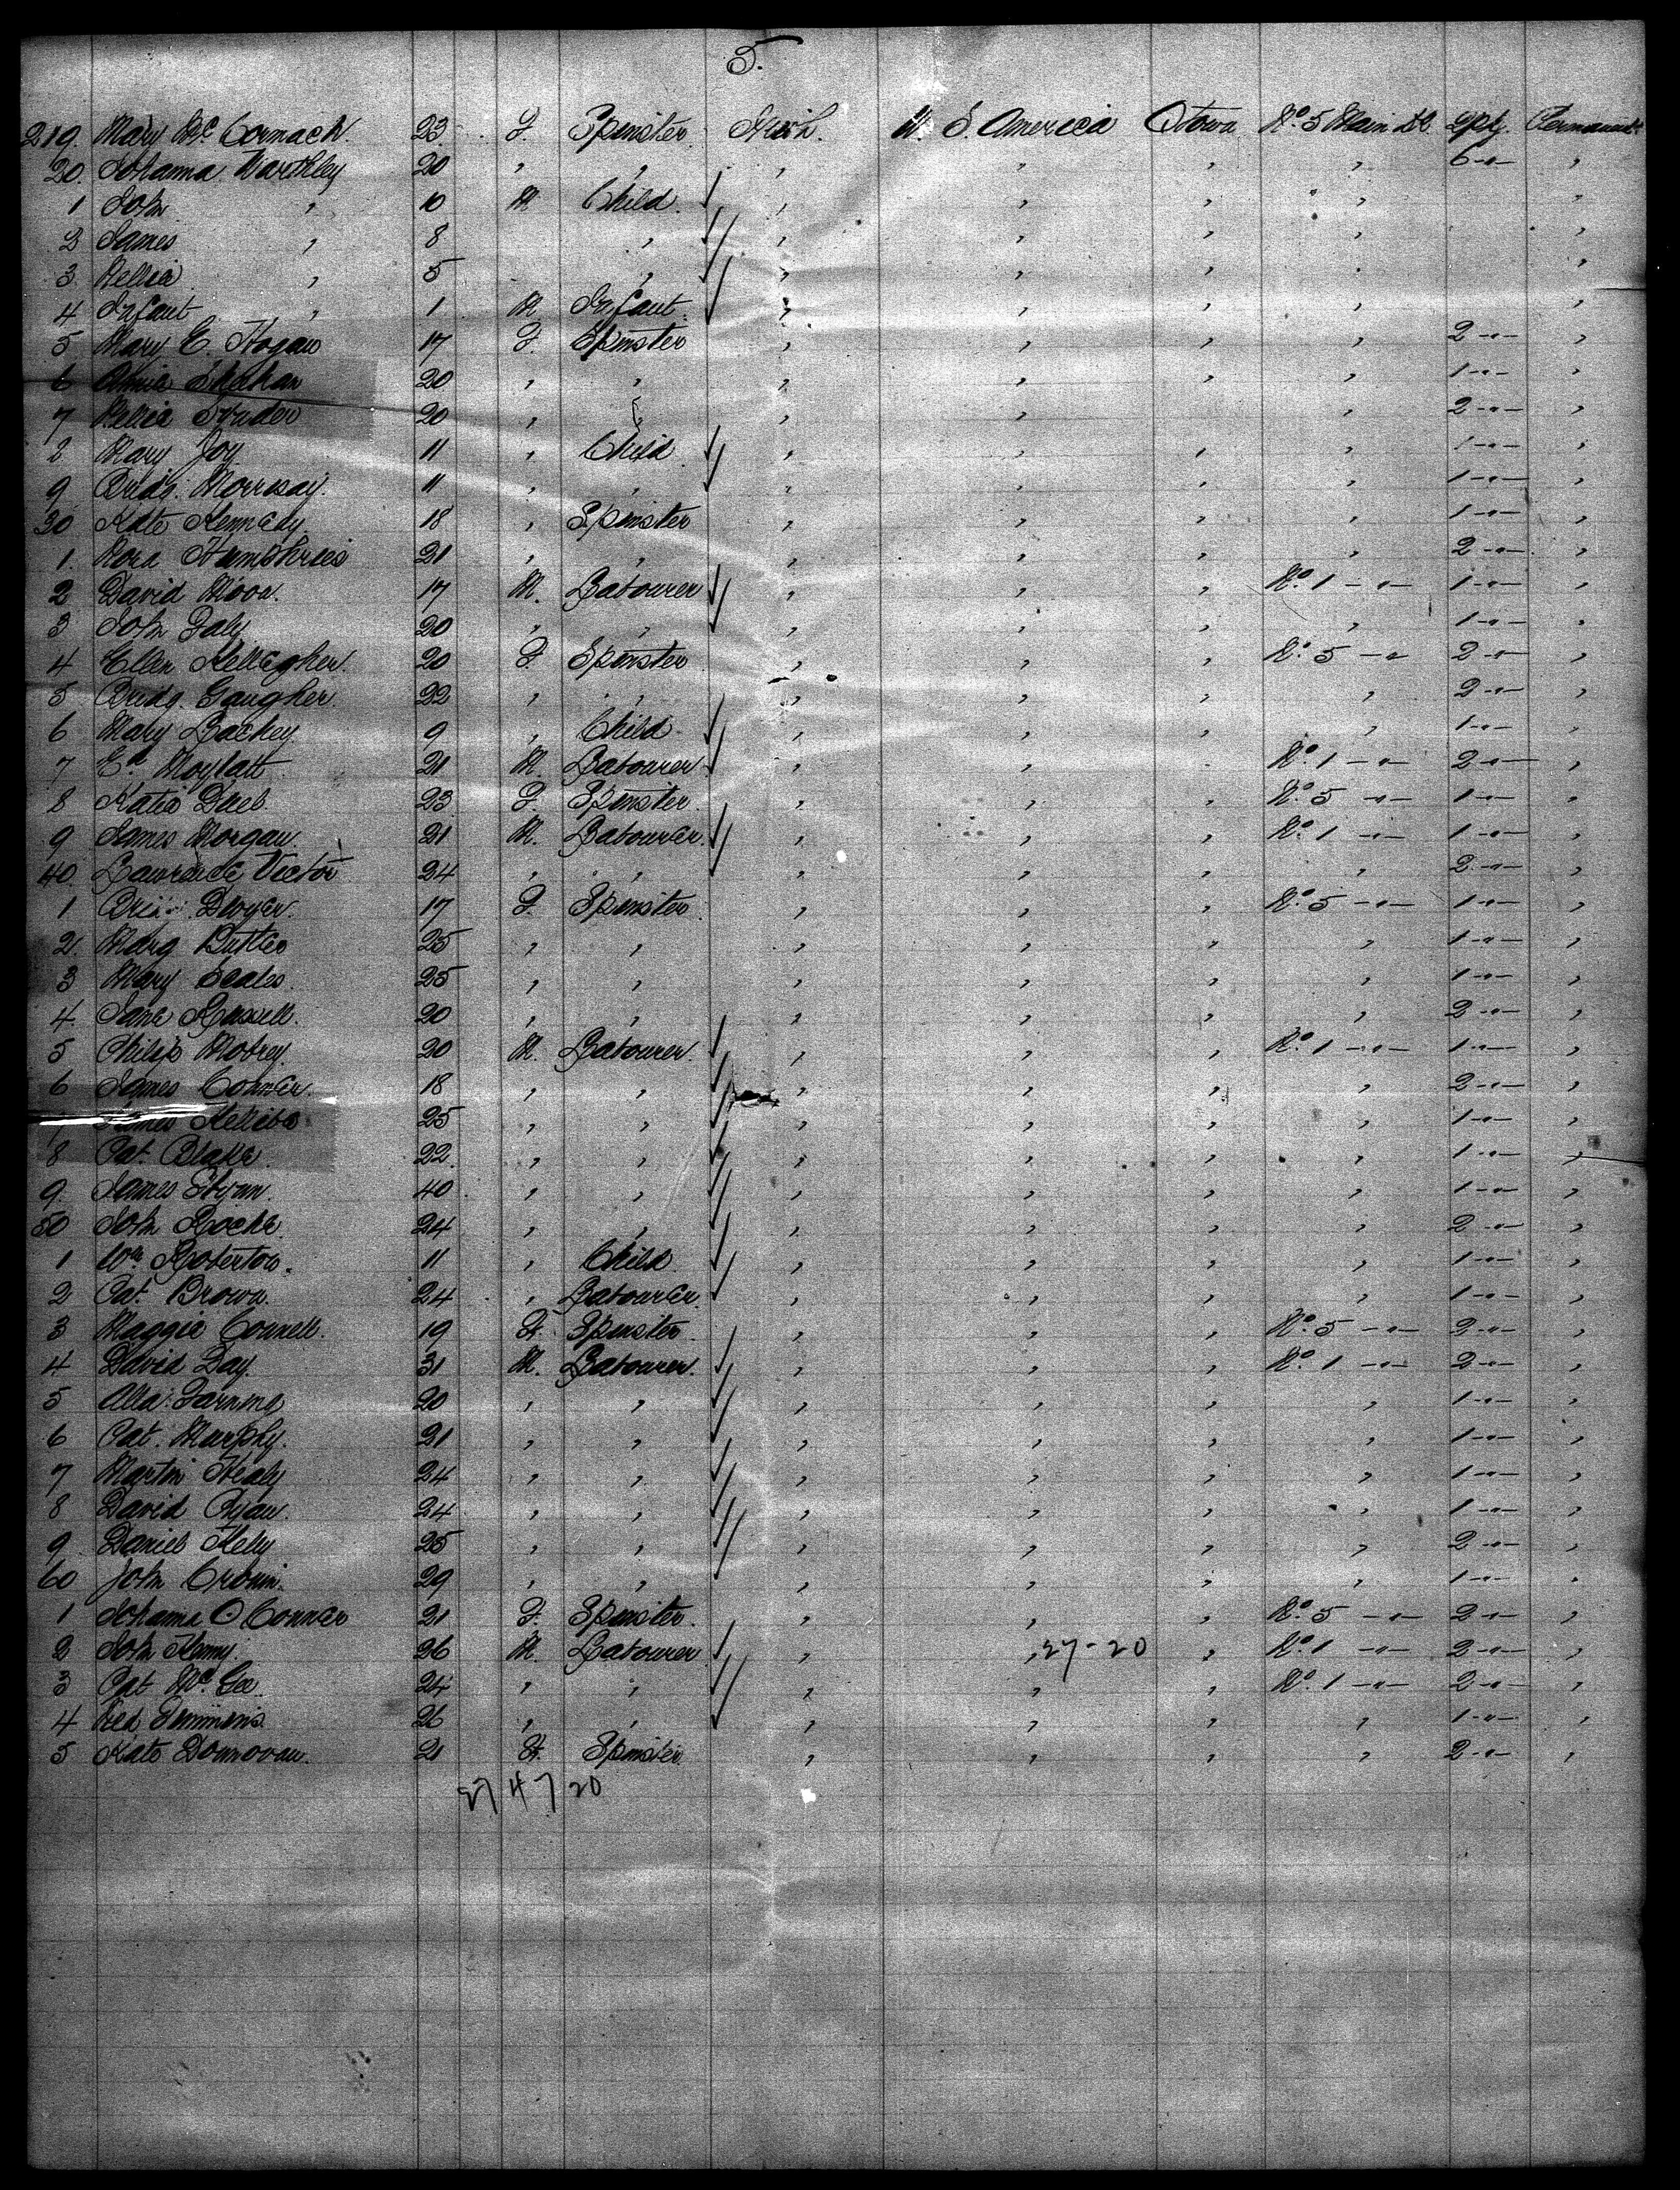 5.
219. Mary Mc Cormack. 23 F. Spinster. Irish. U. S. America Iowa No. 5 Main Dk 2 pkg. Permanent
20. Johanna Warthley 20 , , , , , , 6 -"- ,
1 John , 10 M Child. , , , , ,
2 James , 8 , , , , , ,
3 Nellie , 5 , , , , , ,
4 Infant , 1 M Infant. , , , , ,
5 Mary E. Hogan 17 F. Spinster , , , , 2 -"- ,
6 Annie Shahan 20 , , , , , , 1 -"- ,
7 Nellie 20 , , , , 2 -"- ,
2 Mary Joy 11 , Child , , , , 1 -"- ,
9 Bridg. Morrisay. 11 , , , , , , 1 -"- ,
30 Kate Kennedy 18 , Spinster , , , , 1 -"- ,
1. Nora Humphries 21 , , , , , , 2 -"- ,
2 David Moor. 17 M. Labourer , , , No. 1 -"- 1 -"- ,
3 John Daly 20 , , , , , , 1 -"- ,
4 Ellen Kellegher. 20 F Spinster , , , No. 5 -"- 2 -"- ,
5 Bridg. Gaugher. 22 , , , , , , 2 -"- ,
6 Mary Lackey 9 , Child. , , , , 1 -"- ,
7 Ed Moylatt 21 M. Labourer , , , No. 1 -"- 2 -"- ,
8 Katie Dueb 23 F. Spinster , , , No. 5 -"- 1 -"- ,
9 James Morgan. 21 M. Labourer. , , , No. 1 -"- 1 -"- ,
40. Lawrence Victor 24 , , , , , , 2 -"- ,
1 Dwyer. 17 F. Spinster. , , , No. 5 -"- 1 -"- ,
2. Marg Butler 25 , , , , , , 1 -"- ,
3 Mary Scales. 25 , , , , , , 1 -"- ,
4. Jane Russell. 20 , , , , , , 2 -"- ,
5 Philip Mobrey 20 M. Labourer. , , , No. 1 -"- 1 -"- ,
6 James Conner. 18 , , , , , , 2 -"- ,
James 25 , , , , , , 1 -"- ,
8 Pat. Blake. 22. , , , , , , 1 -"- ,
9. James Glynn. 40. , , , , , , 1 -"- ,
50 John Roche. 24 , , , , , , 2 -"- ,
1 Wm Roberton. 11 , Child. , , , , 1 -"- ,
2 Pat. Brown. 24 , Labourer. , , , , 1 -"- ,
3 Maggie Connell. 19 F. Spinster. , , , No. 5 -"- 2 -"- ,
4 David Day. 31 M. Labourer. , , , No. 1 -"- 2 -"- ,
5 Farning 20 , , , , , , 1 -"- ,
6 Pat. Murphy. 21 , , , , , , 1 -"- ,
7 Martin Healy 24 , , , , , , 1 -"- ,
8 David Ryan. 24 , , , , , , 1 -"- ,
9. Daniel Kelly 25 , , , , , , 2 -"- ,
60 John Cronin. 29 , , , , , , 1 -"- ,
1 Johanna O Conner 21 F. Spinster. , , , No. 5 -"- 2 -"- ,
2 John Kenny. 26 M. Labourer , , 27-20 , No. 1 -"- 2 -"- ,
3 Pat Mc Gee. 24 , , , , , No. 1 -"- 2 -"- ,
4 Ned Simmins. 26 , , , , , , 1 -"- ,
5 Kate Donnovan. 21 F. Spinster. , , , , 2 -"- ,
27 4 7 20